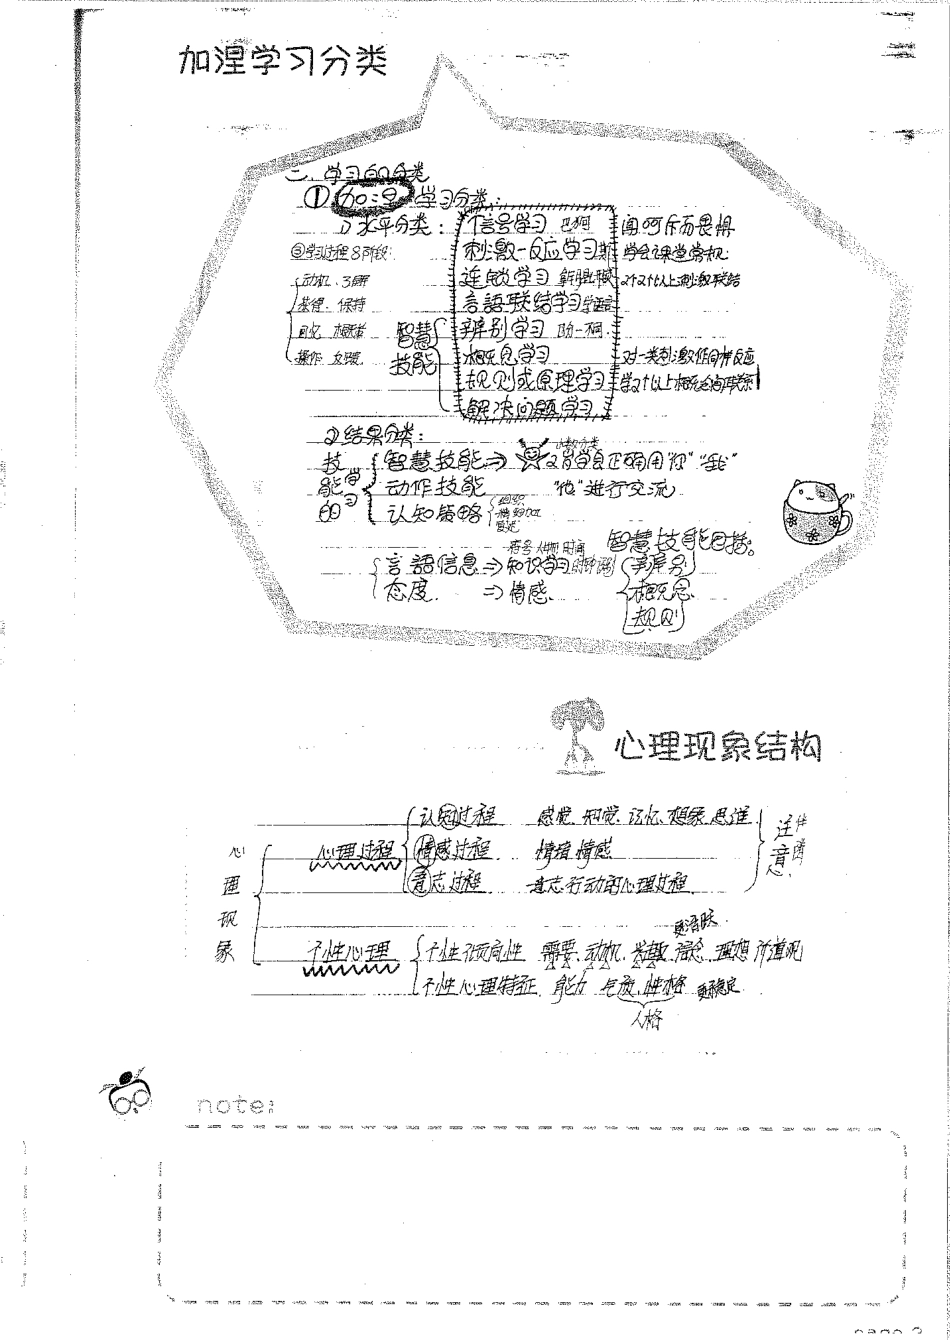 加涅学习分类
二、学习的分类
① 加涅 学习分类:
1) 水平分类: 信号学习 巴甫 闻呵斥而畏惧
③学习过程8阶段: 刺激-反应学习 斯 学会课堂常规
动机、了解 连锁学习 2个以上刺激联结
获得、保持 言語联结学习
回忆、概括 智慧技能 辨别学习
操作、反馈 概念学习 对一类刺激作同样反应
规则或原理学习 学2个以上概念间联系
解决问题学习
2) 结果分类:
技能的学习 智慧技能⇒ 2岁学会正确用"你""我"
动作技能 "他"进行交流
认知策略 组织
精细加工
复述
符号 人物 时间 智慧技能包括。
言語信息⇒知识学习 辨别
态度 ⇒情感 概念
规则
心理现象结构
认知过程 感觉、知觉、记忆、想象、思维
心理过程 情感过程 情绪、情感 注意 伴随
意志过程 意志行动的心理过程
心理现象
更活跃
个性心理 个性倾向性 需要、动机、兴趣、信念、理想、价值观
个性心理特征 能力 气质、性格 更稳定
人格
note: